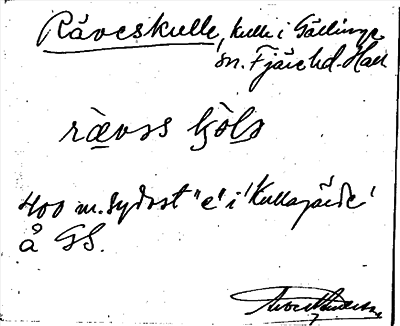 Räveskulle, kulle i Gällinge
sn. Fjäre hd. Hall
rævss
400 m. sydost "e" i 'Kullagärde'
å GS.